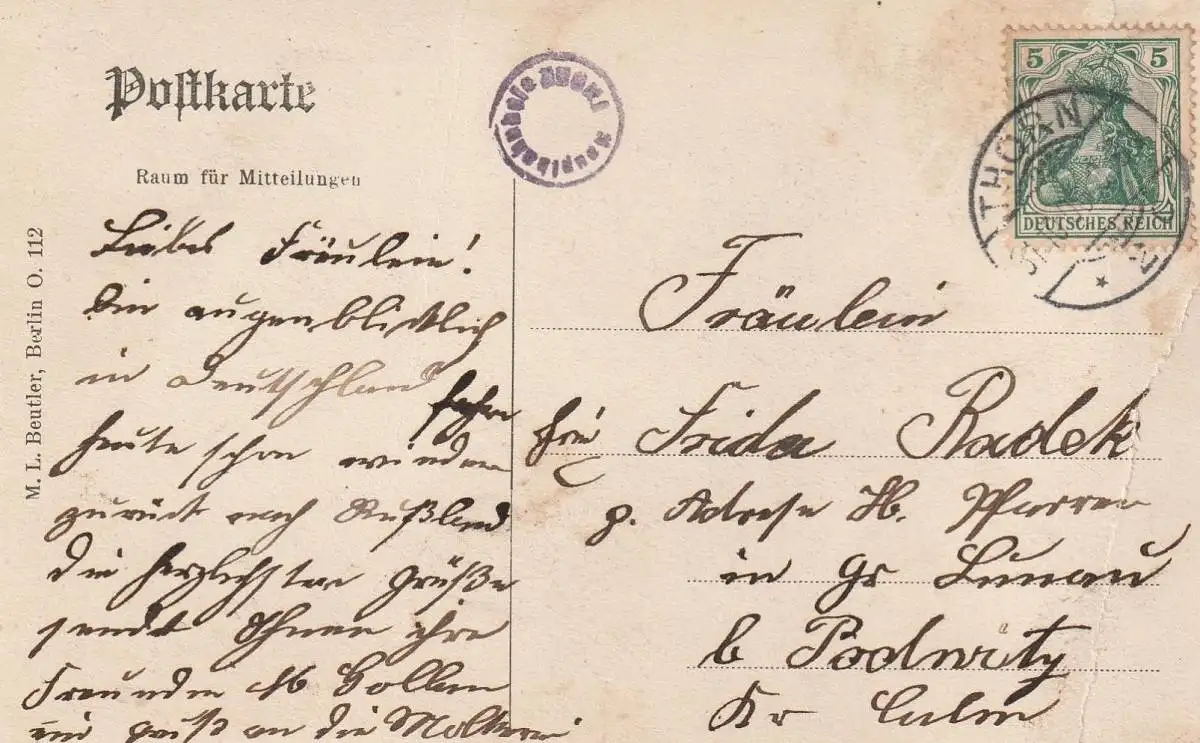 Postkarte
Raum für Mitteilungen
M. L. Beutler, Berlin O. 112
5 5
DEUTSCHES REICH
THORN
Liebes Fräulein!
Bin augenblicklich
in Deutschland fahre
heute schon wieder
zurück nach Rußland
die herzlichsten Grüße
sendt Ihnen ihre
Freundin
ein gruß an die Molkerei
Fräulein
Frida Radek
p. Adresse H. Pfarrer
in Gr Lunau
b Podwitz
Kr Culm